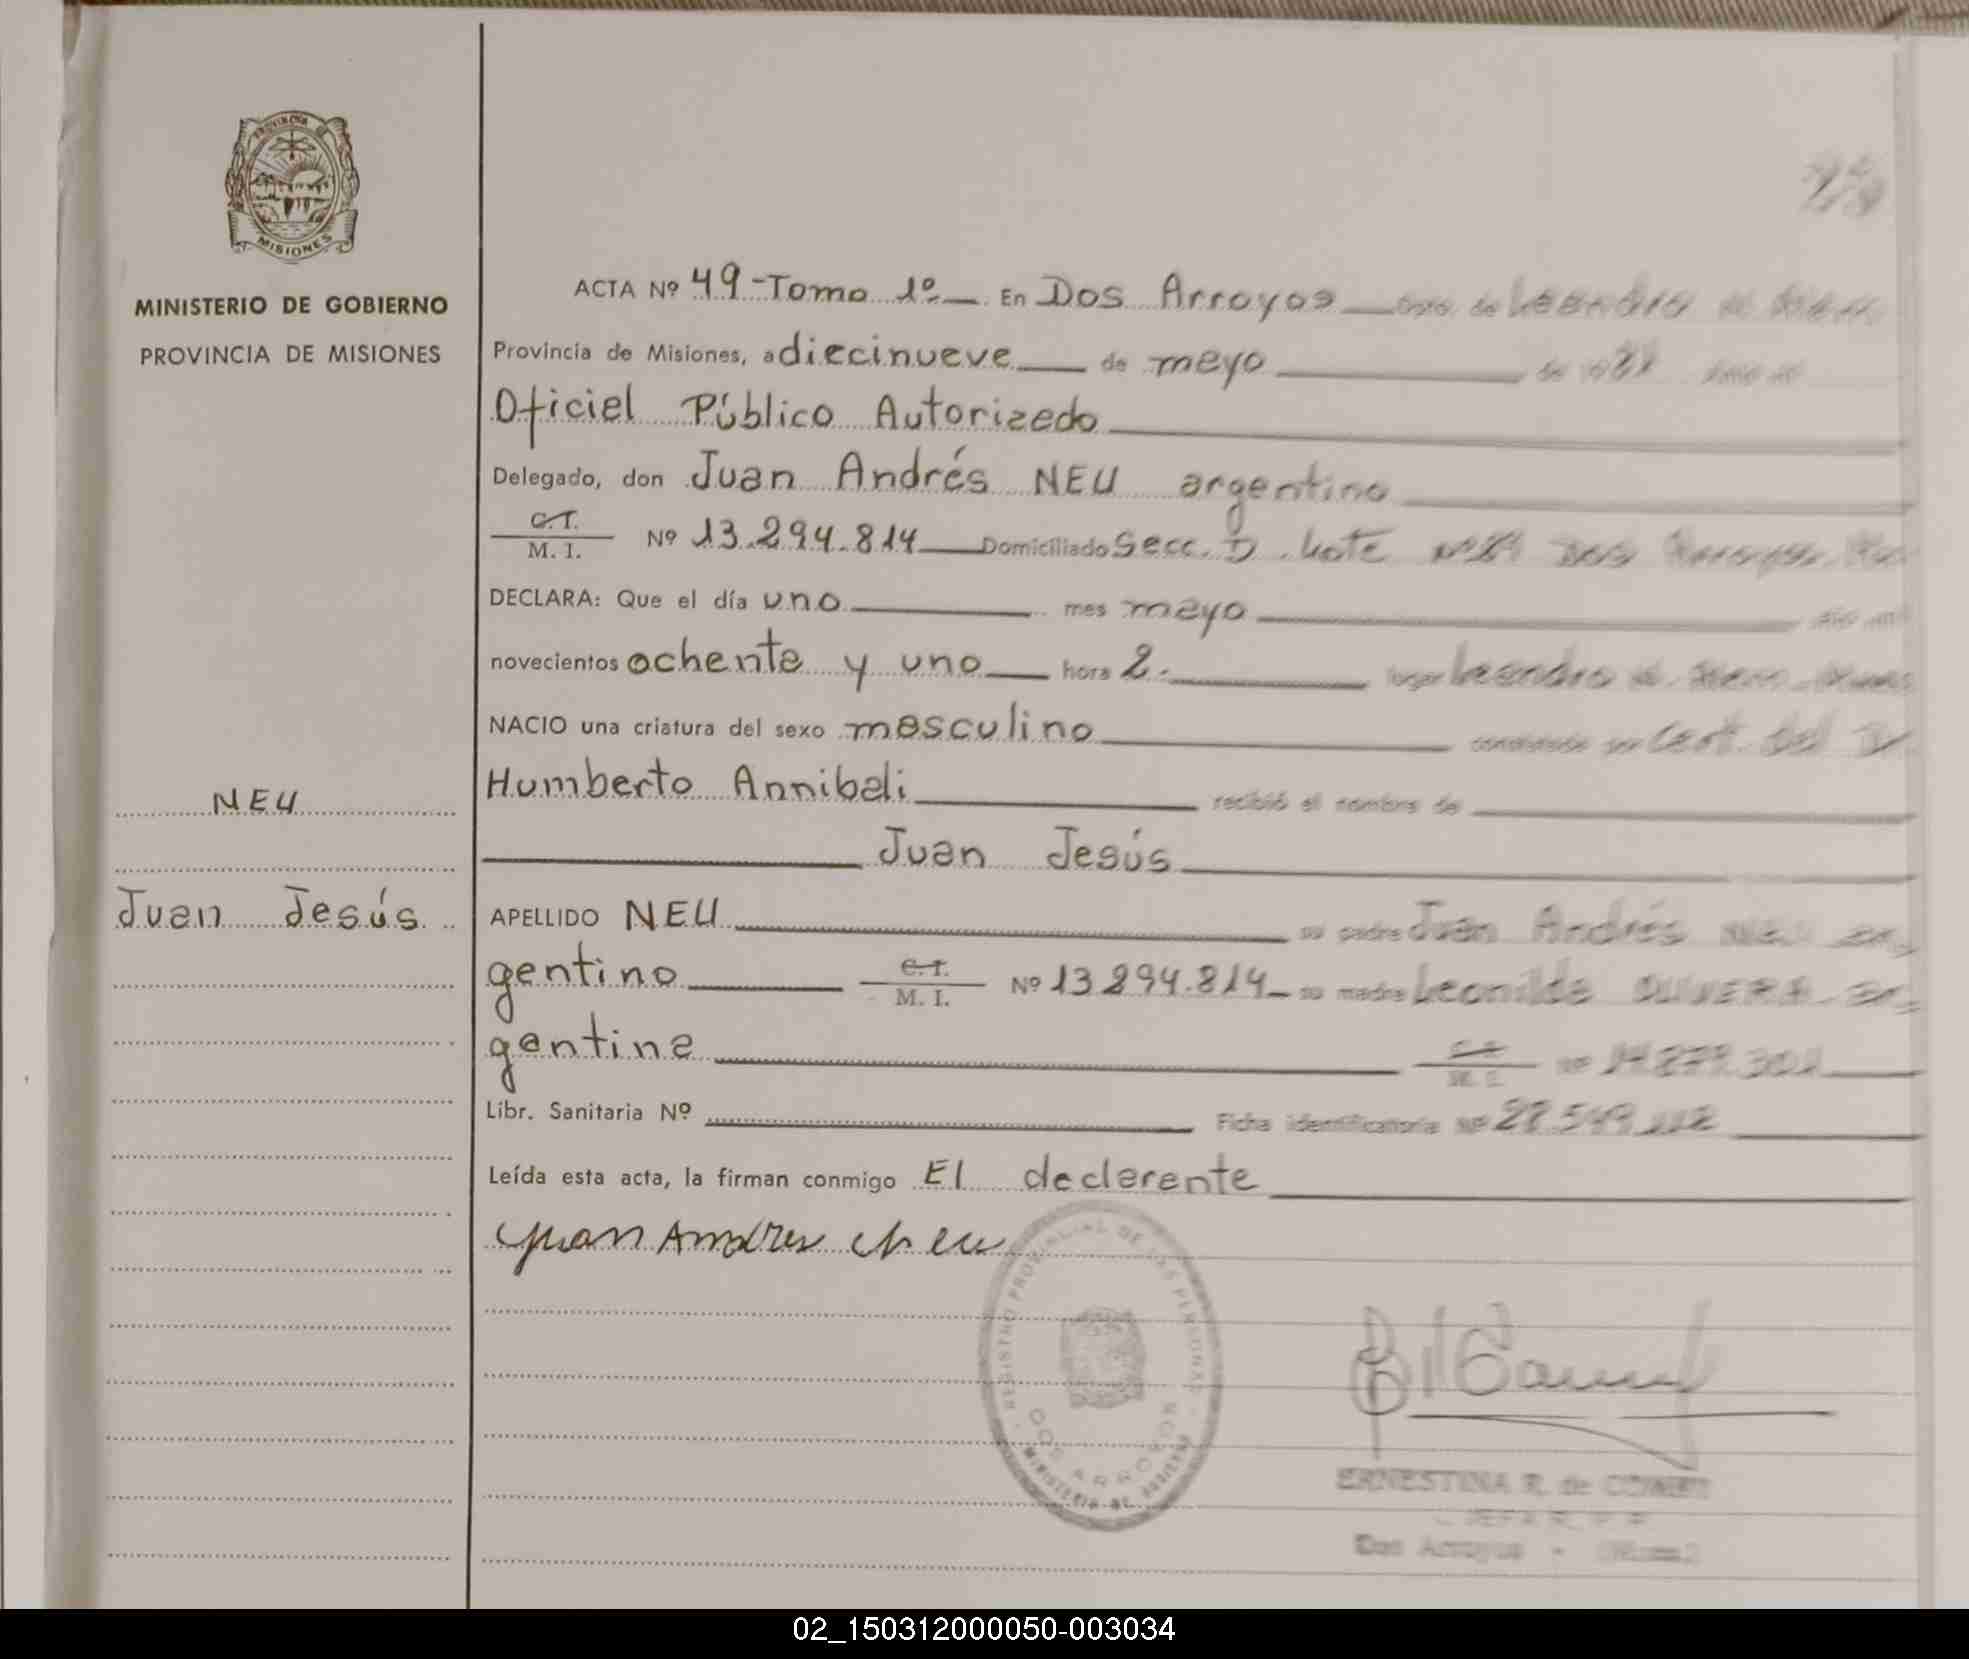 PROVINCIA DE
MISIONES
MINISTERIO DE GOBIERNO
PROVINCIA DE MISIONES
NEU
Juan Jesús
ACTA Nº 49-Tomo 1º En Dos Arroyos Dpto. de Leandro N. Alem
Provincia de Misiones, a diecinueve de mayo de 1981
Oficial Público Autorizado
Delegado, don Juan Andrés NEU argentino
C.I.
M. I. Nº 13.294.814 Domiciliado Secc. D. Lote Dos Arroyos
DECLARA: Que el día uno mes mayo año mil
novecientos ochenta y uno hora 2.- lugar Leandro N. Alem
NACIO una criatura del sexo masculino constatado por Cert. del Dr.
Humberto Annibali recibió el nombre de
Juan Jesús
APELLIDO NEU su padre Juan Andrés NEU ar-
gentino C.I. M. I. Nº 13.294.814 su madre Leonilda OLIVERA ar-
gentina C.I. M. I. Nº
Libr. Sanitaria Nº Ficha identificatoria Nº
Leída esta acta, la firman conmigo El declarante
Juan Andres Neu
REGISTRO PROVINCIAL DE LAS PERSONAS
DOS ARROYOS
MINISTERIO DE GOBIERNO
ERNESTINA R. de
Dos Arroyos - (Mnes.)
02_150312000050-003034